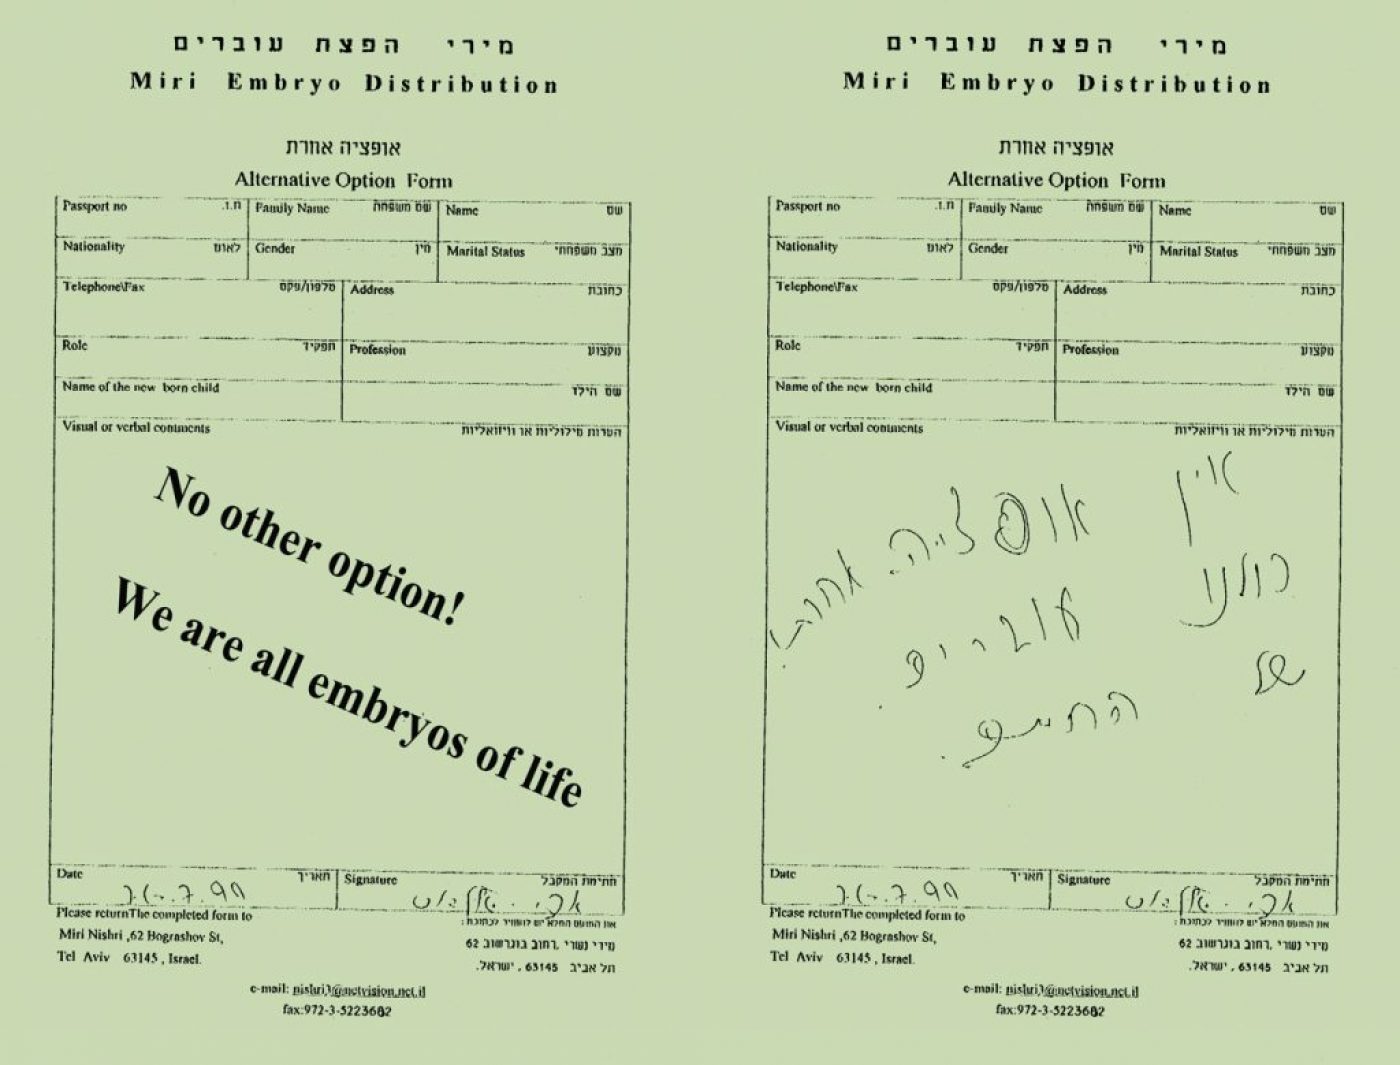 מירי הפצת עוברים
Miri Embryo Distribution
אופציה אחרת
Alternative Option Form
Passport no ת.ז. Family Name שם משפחה Name שם
Nationality לאום Gender מין Marital Status מצב משפחתי
Telephone\Fax טלפון/פקס Address כתובת
Role תפקיד Profession מקצוע
Name of the new born child שם הילד
Visual or verbal comments הערות מילוליות או וויזואליות
No other option!
We are all embryos of life
Date תאריך Signature חתימת המקבל
7.99
Please returnThe completed form to את הטופס המלא יש להחזיר לכתובת:
Miri Nishri ,62 Bograshov St, מירי נשרי ,רחוב בוגרשוב 62
Tel Aviv 63145 , Israel. תל אביב 63145 , ישראל.
e-mail: nishri3@netvision.net.il
fax:972-3-5223682
מירי הפצת עוברים
Miri Embryo Distribution
אופציה אחרת
Alternative Option Form
Passport no ת.ז. Family Name שם משפחה Name שם
Nationality לאום Gender מין Marital Status מצב משפחתי
Telephone\Fax טלפון/פקס Address כתובת
Role תפקיד Profession מקצוע
Name of the new born child שם הילד
Visual or verbal comments הערות מילוליות או וויזואליות
אין אופציה אחרת!
כולנו עוברים
של החיים.
Date תאריך Signature חתימת המקבל
7.99
Please returnThe completed form to את הטופס המלא יש להחזיר לכתובת:
Miri Nishri ,62 Bograshov St, מירי נשרי ,רחוב בוגרשוב 62
Tel Aviv 63145 , Israel. תל אביב 63145 , ישראל.
e-mail: nishri3@netvision.net.il
fax:972-3-5223682